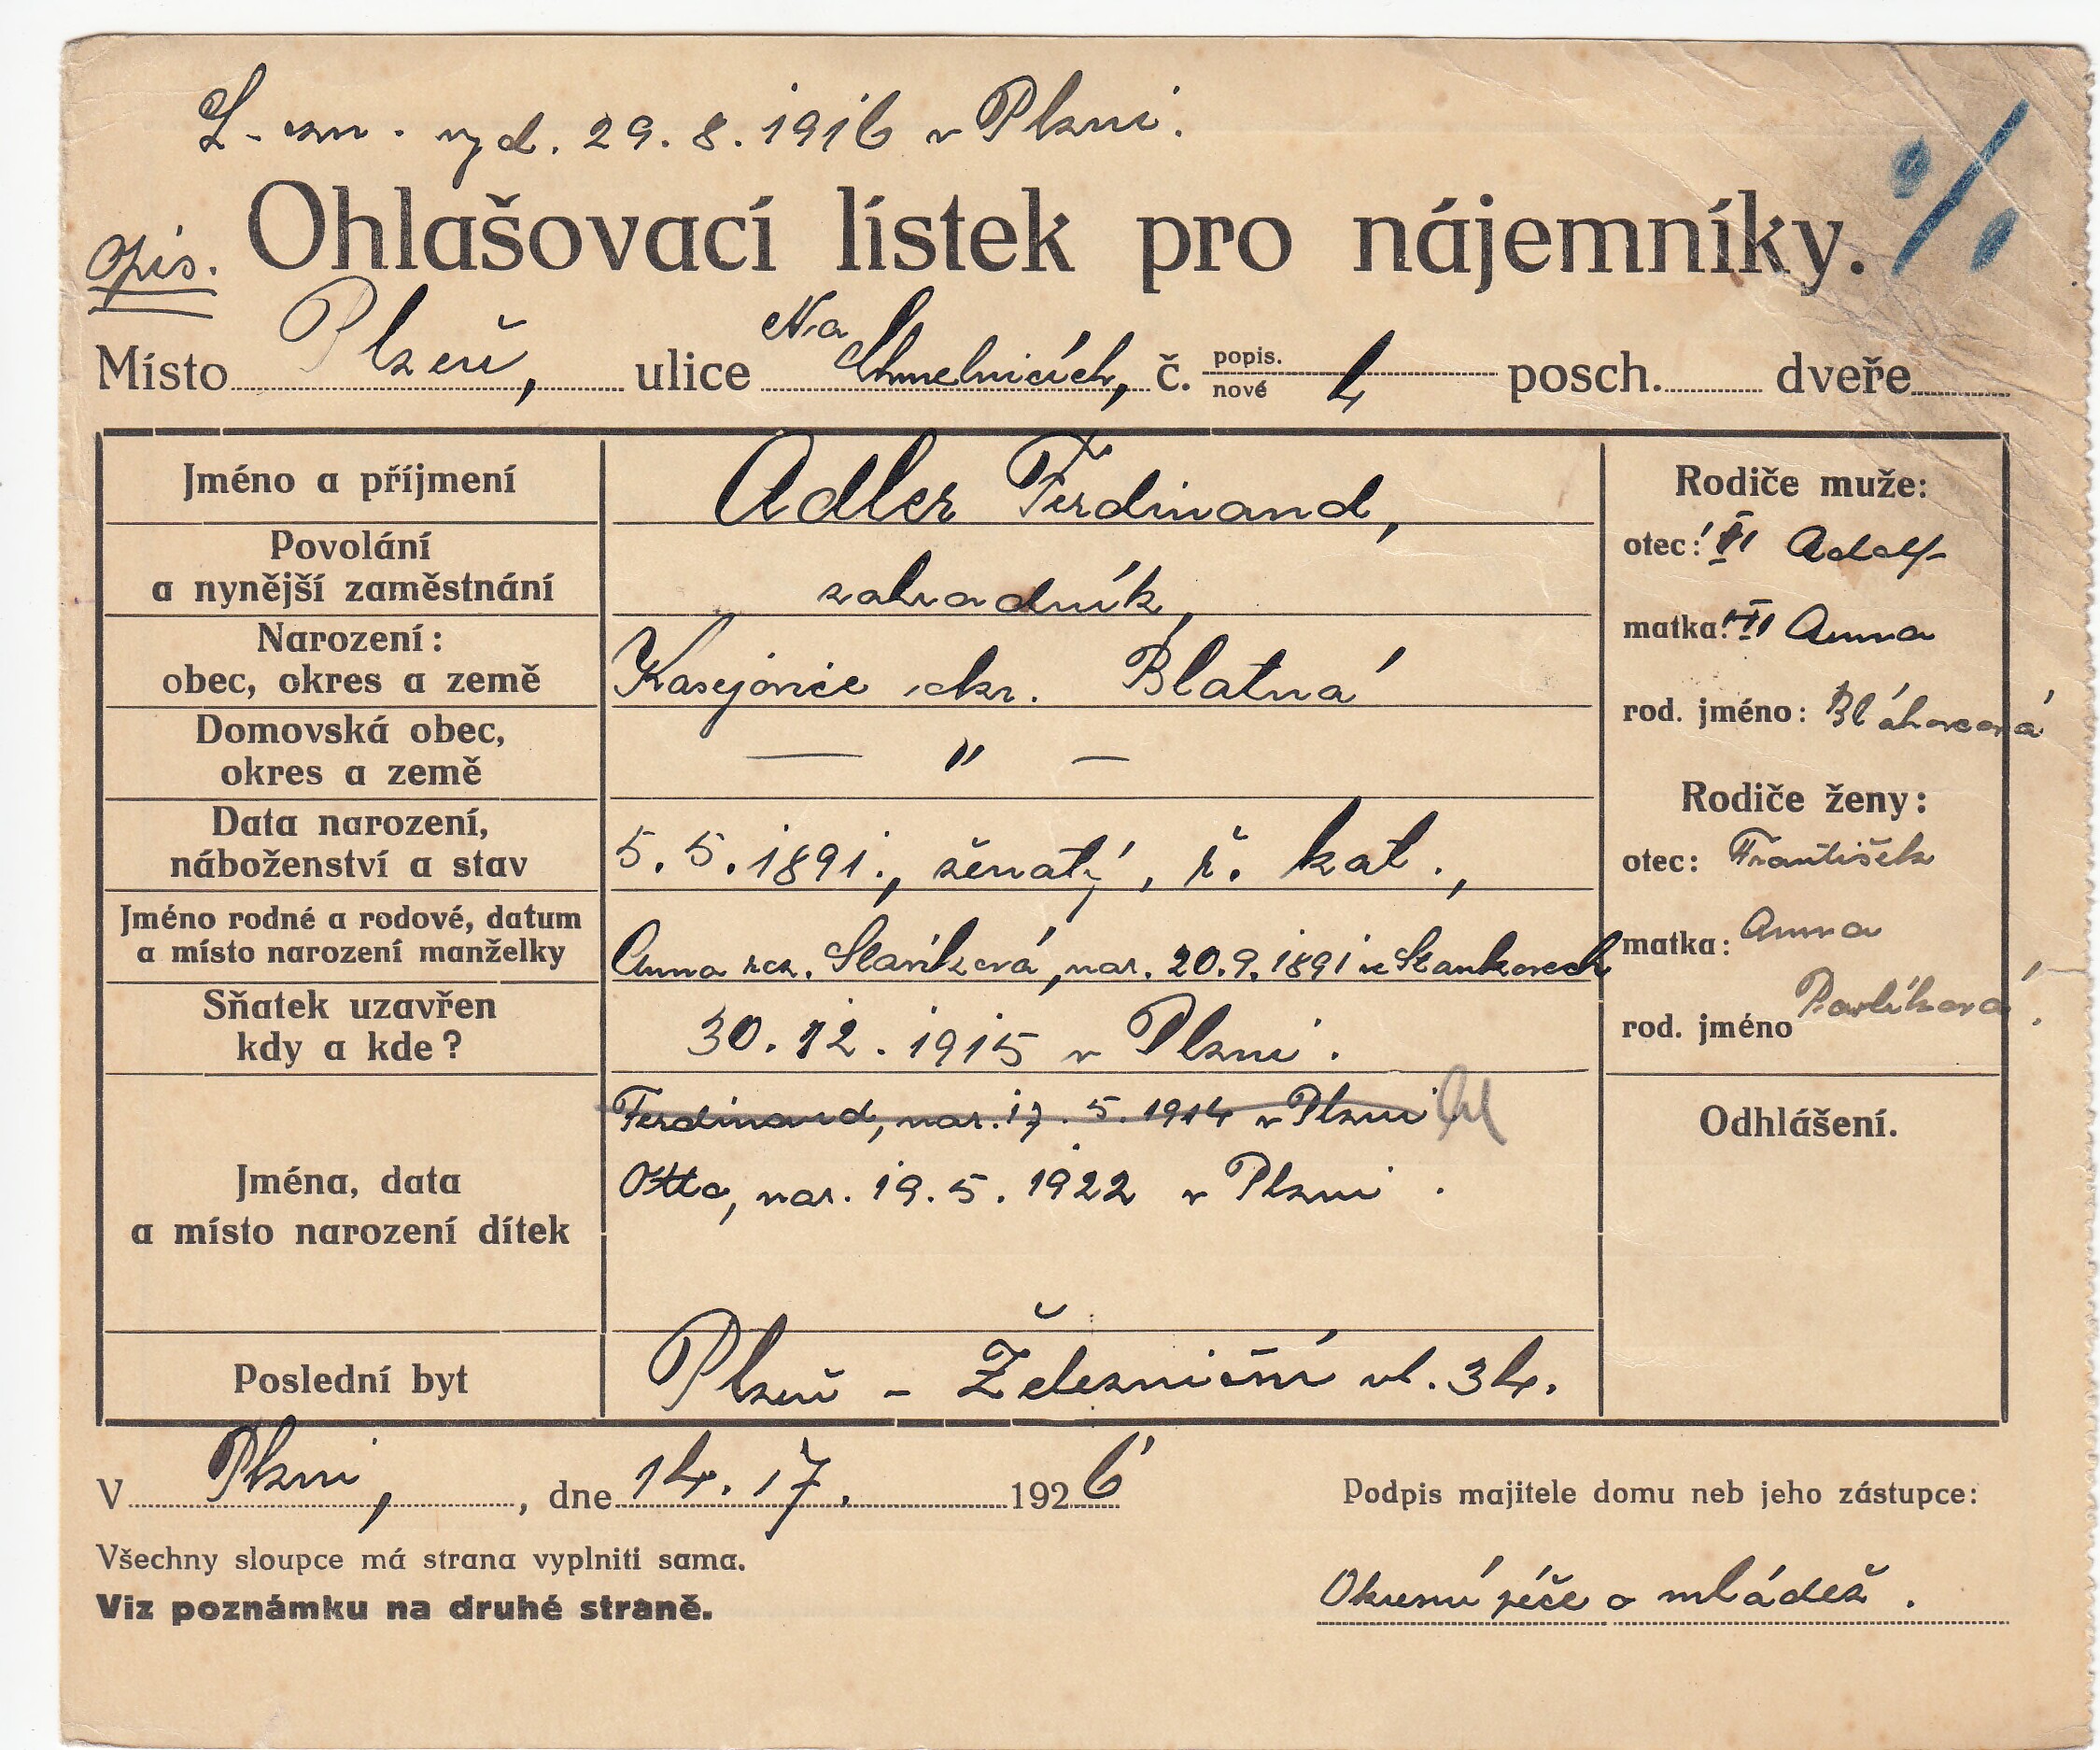 L - zn. vyd. 29. 8. 1916 v Plzni.
opis.
Ohlašovací lístek pro nájemníky. %
Místo Plzeň, ulice Na Chmelnicích, č. popis. nové 4 posch. dveře
Jméno a příjmení Adler Ferdinand,
Povolání
a nynější zaměstnání zahradník,
Narození:
obec, okres a země Kasejovice okr. Blatná
Domovská obec,
okres a země — " —
Data narození,
náboženství a stav 5. 5. 1891., ženatý, ř. kat.,
Jméno rodné a rodové, datum
a místo narození manželky Anna roz. nar. 20. 9. 1891 ve Stankovech
Sňatek uzavřen
kdy a kde? 30. 12. 1915 v Plzni.
Jména, data
a místo narození dítek
Ferdinand, nar. 17. 5. 1914 v Plzni
Otto, nar. 19. 5. 1922 v Plzni.
Poslední byt Plzeň - Železniční ul. 34.
Rodiče muže:
otec: Adolf
matka: Anna
rod. jméno: Bláhovcová
Rodiče ženy:
otec: František
matka: Anna
rod. jméno Pavlíková.
Odhlášení.
V Plzni, , dne 14. 17. 1926
Podpis majitele domu neb jeho zástupce:
Všechny sloupce má strana vyplniti sama.
Viz poznámku na druhé straně.
Okresní péče o mládež.